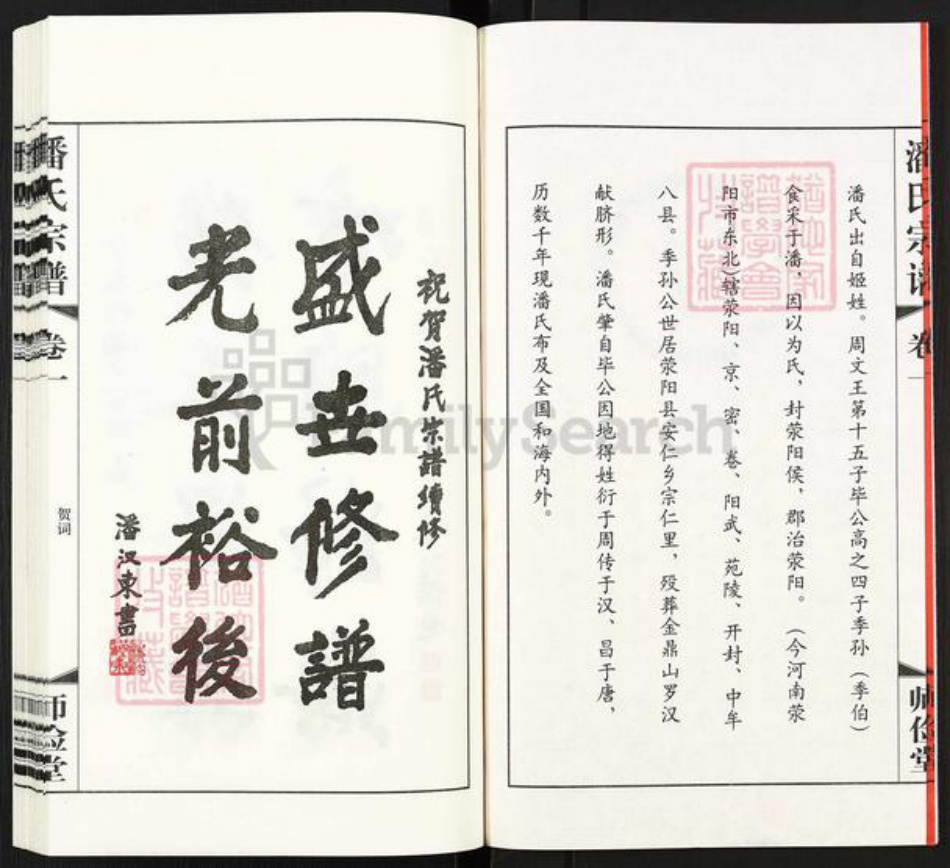 潘氏宗谱
卷一
师俭堂
潘氏出自姬姓。周文王第十五子毕公高之四子季孙(季伯)
食采于潘,因以为氏,封荥阳侯,郡治荥阳。(今河南荥
阳市东北)辖荥阳、京、密、卷、阳武、苑陵、开封、中牟
八县。季孙公世居荥阳县安仁乡宗仁里,殁葬金鼎山罗汉
献脐形。潘氏肇自毕公因地得姓衍于周传于汉、昌于唐,
历数千年现潘氏布及全国和海内外。
祝贺潘氏宗譜續修
盛世修譜
光前裕後
潘汉东書
潘氏宗谱
卷一
贺词
师俭堂
FamilySearch